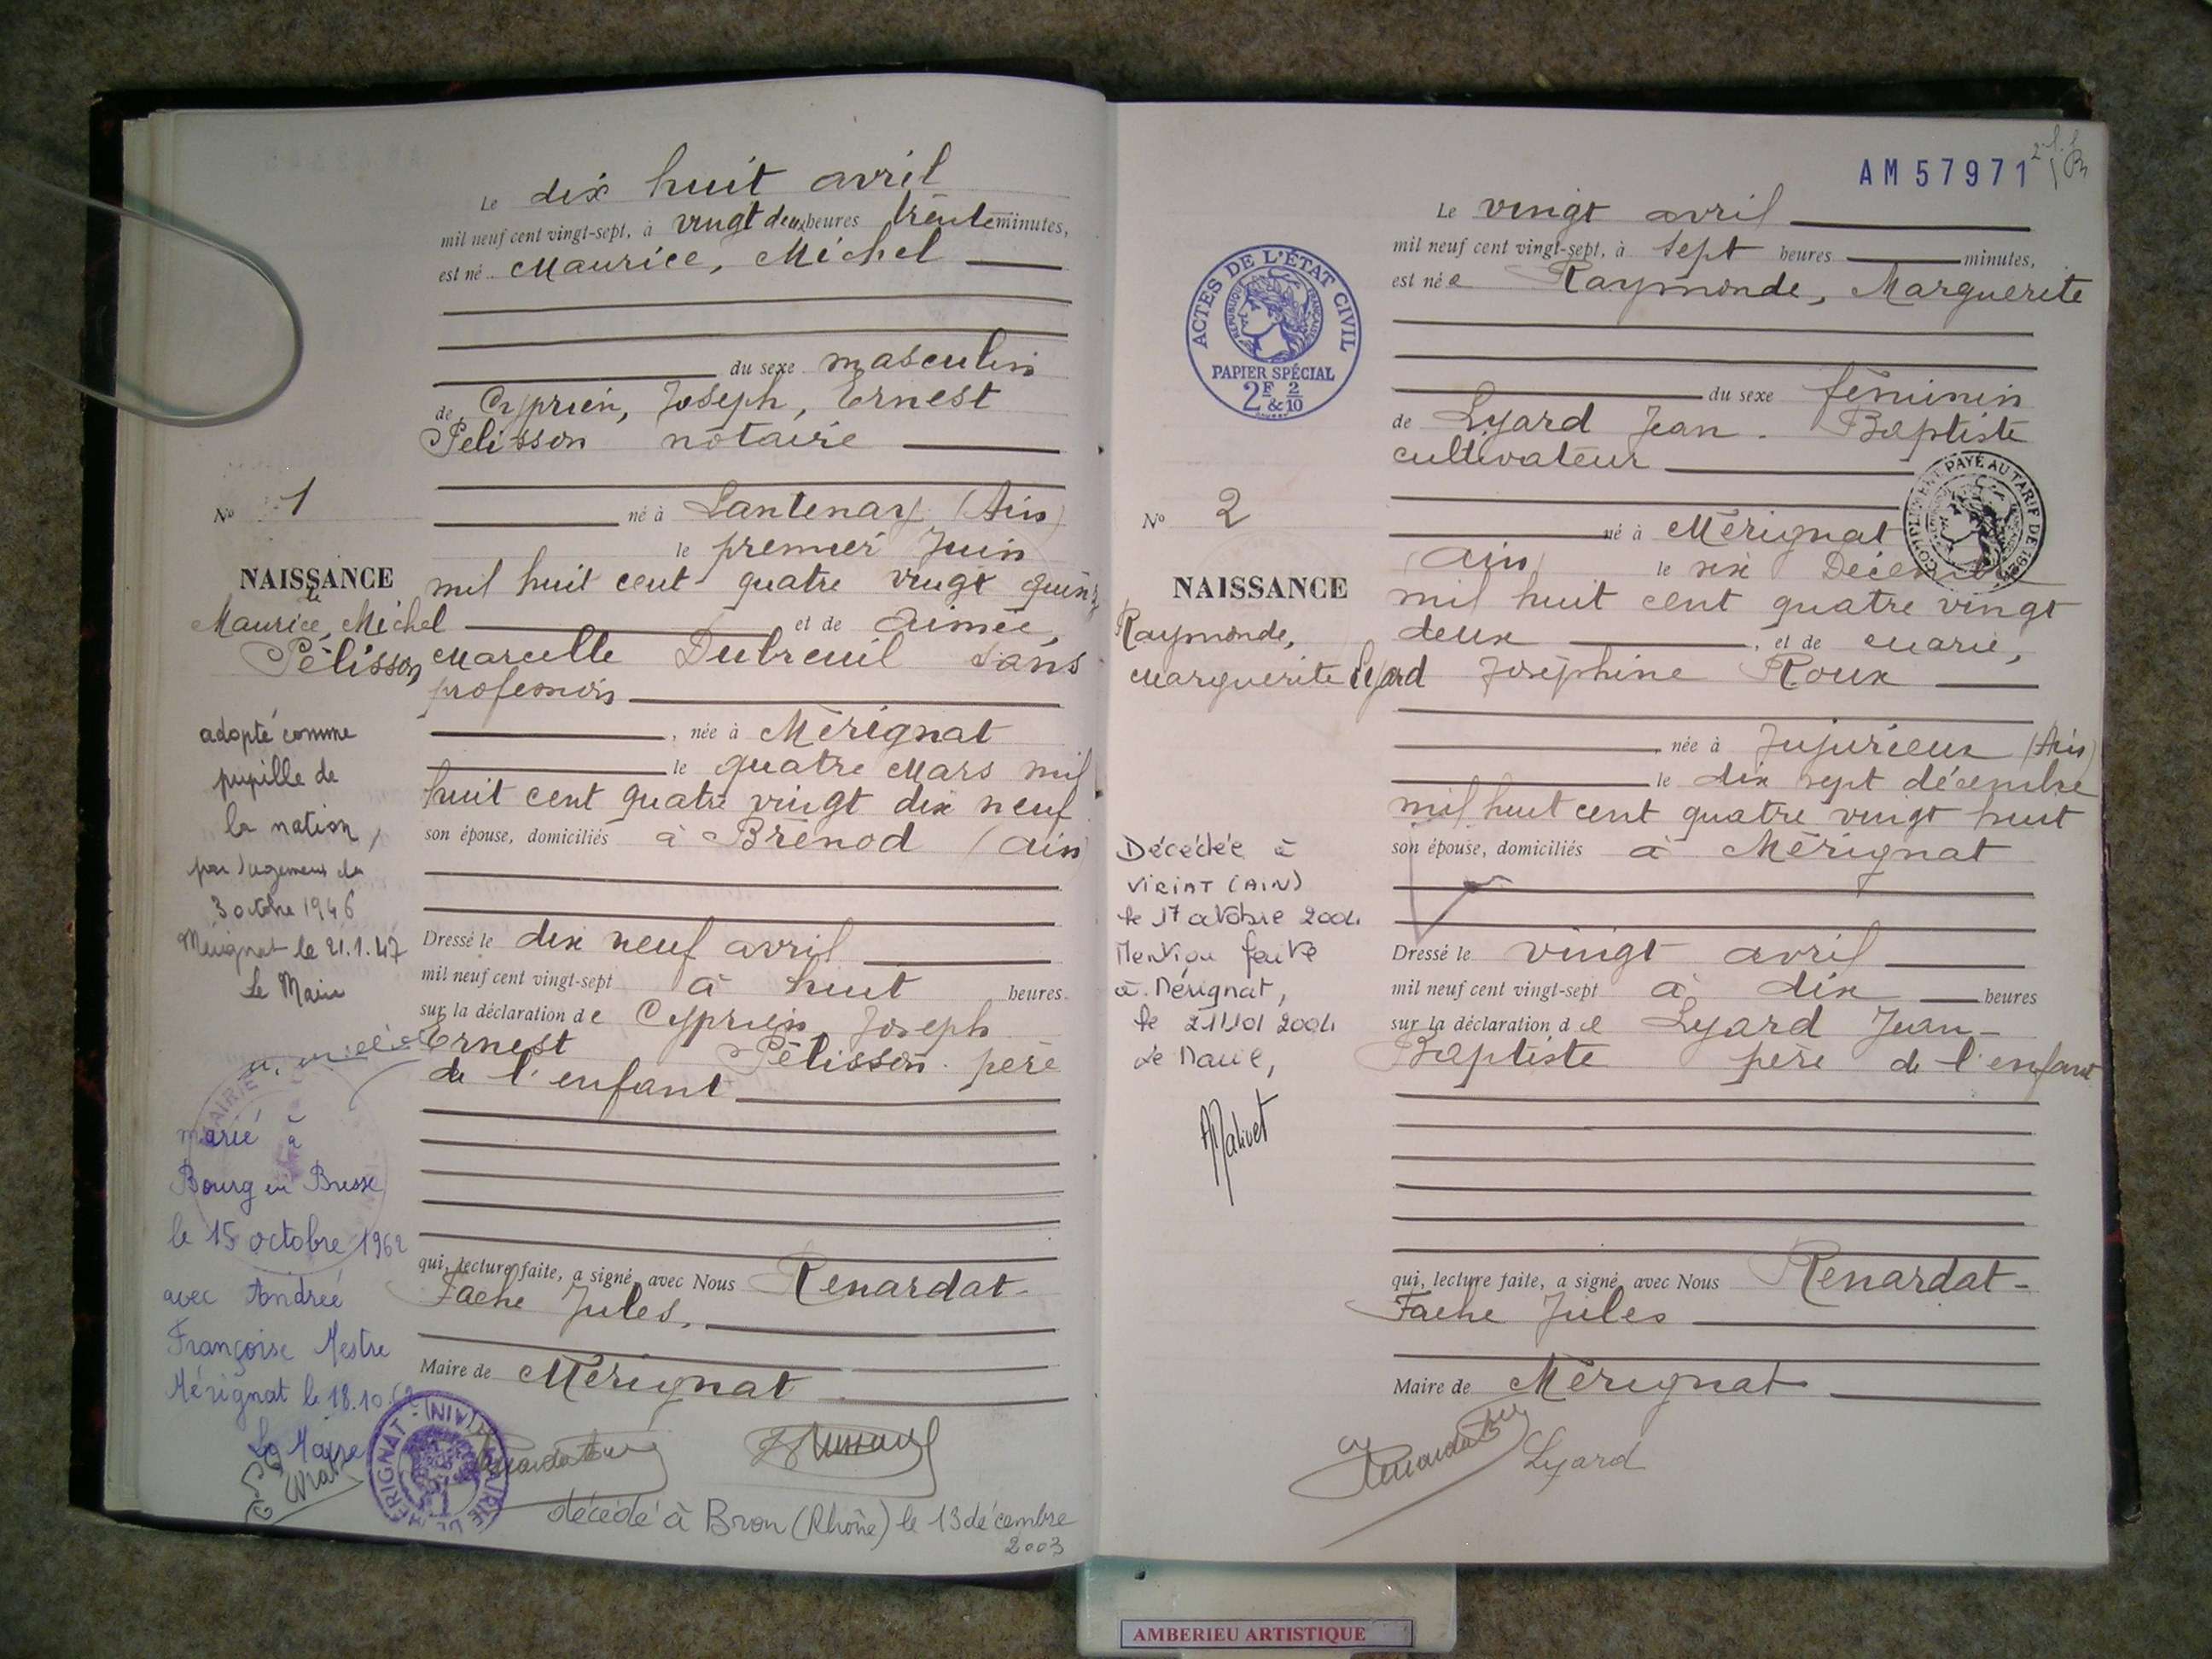 Le dix huit avril
mil neuf cent vingt-sept, à vingt deux heures trente minutes,
est né Maurice, Michel
du sexe masculin
de Cyprien, Joseph, Ernest
Pelisson notaire
né à Lantenay (Ain)
le premier Juin
mil huit cent quatre vingt quinze
et de Aimée,
Marcelle Dubreuil sans
profession
, née à Mérignat
le quatre Mars mil
huit cent quatre vingt dix neuf
son épouse, domiciliés à Brénod (Ain)
Dressé le dix neuf avril
mil neuf cent vingt-sept à huit heures
sur la déclaration de Cyprien, Joseph
Ernest Pélisson père
de l'enfant
qui, lecture faite, a signé avec Nous Renardat-
Fache Jules,
Maire de Mérignat
décédé à Bron (Rhône) le 13 décembre
2003
No 1
NAISSANCE
Maurice, Michel
Pélisson
adopté comme
pupille de
la nation,
par jugement du
3 octobre 1946
Mérignat le 21.1.47
Le Maire
marié à
Bourg en Bresse
le 15 octobre 1962
avec Andrée
Françoise Mestre
Mérignat le 18.10.62
Le Maire
MAIRIE DE MÉRIGNAT (AIN)
AM 57971
ACTES DE L'ÉTAT CIVIL
REPUBLIQUE FRANÇAISE
PAPIER SPÉCIAL
2F & 2/10
Le vingt avril
mil neuf cent vingt-sept, à sept heures minutes,
est née Raymonde, Marguerite
du sexe féminin
de Lyard Jean-Baptiste
cultivateur
COMPLEMENT PAYÉ AU TARIF DE 192
né à Mérignat
(Ain) le six Décembre
mil huit cent quatre vingt
deux , et de Marie,
Joséphine Roux
née à Jujurieux (Ain)
le dix sept décembre
mil huit cent quatre vingt huit
son épouse, domiciliés à Mérignat
Dressé le vingt avril
mil neuf cent vingt-sept à dix heures
sur la déclaration de Lyard Jean-
Baptiste père de l'enfant
qui, lecture faite, a signé avec Nous Renardat-
Fache Jules
Maire de Mérignat
Lyard
No 2
NAISSANCE
Raymonde,
Marguerite Lyard
Décédée à
VIRIAT (AIN)
le 17 octobre 2004
Mention faite
à Mérignat,
le 21/10/2004
Le Maire,
AMBERIEU ARTISTIQUE